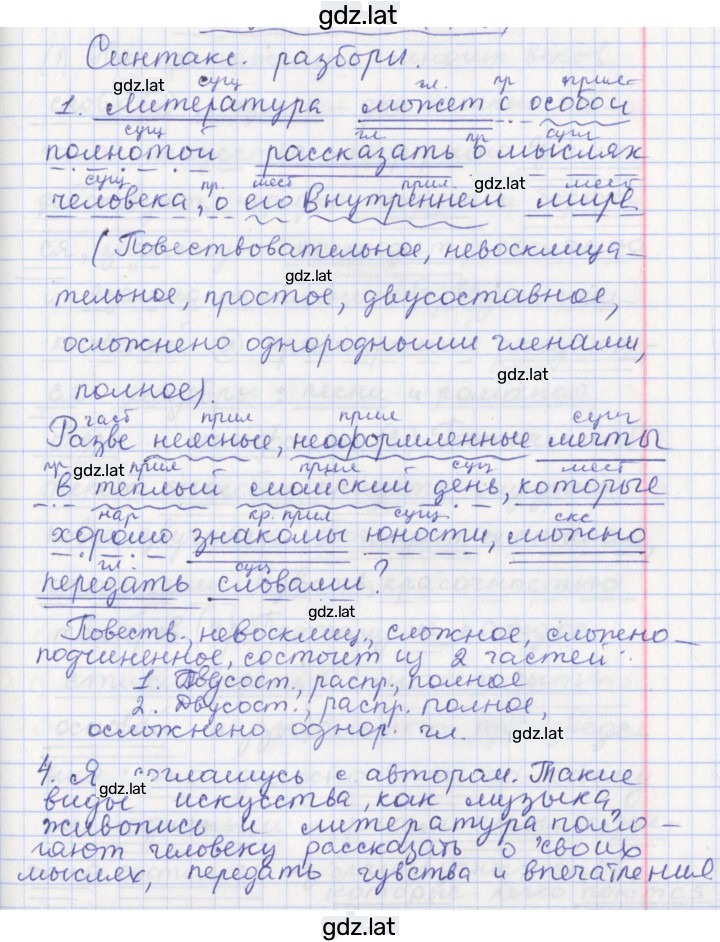 gdz.lat
Синтакс. разборы.
gdz.lat
сущ гл. пр прил
1. Литература может с особой
сущ гл. пр. сущ
полнотой рассказать о мыслях
сущ пр. мест прил. gdz.lat сущ мест
человека, о его внутреннем мире
(Повествовательное, невосклица-
gdz.lat
тельное, простое, двусоставное,
осложнено однородными членами,
gdz.lat
полное).
част прил прил сущ
Разве неясные, неоформленные мечты
пр gdz.lat прил прил сущ мест
в теплый майский день, которые
нар кр. прил сущ скс
хорошо знакомы юности, можно
гл. сущ
передать словами?
gdz.lat
Повеств., невосклиц., сложное, сложено-
подчиненное, состоит из 2 частей:
1. Двусост., распр., полное
2. Двусост., распр. полное,
осложнено однор. гл.
gdz.lat
4. Я соглашусь с автором. Такие
gdz.lat
виды искусства, как музыка,
живопись и литература помо-
гают человеку рассказать о своих
мыслях, передать чувства и впечатления
gdz.lat